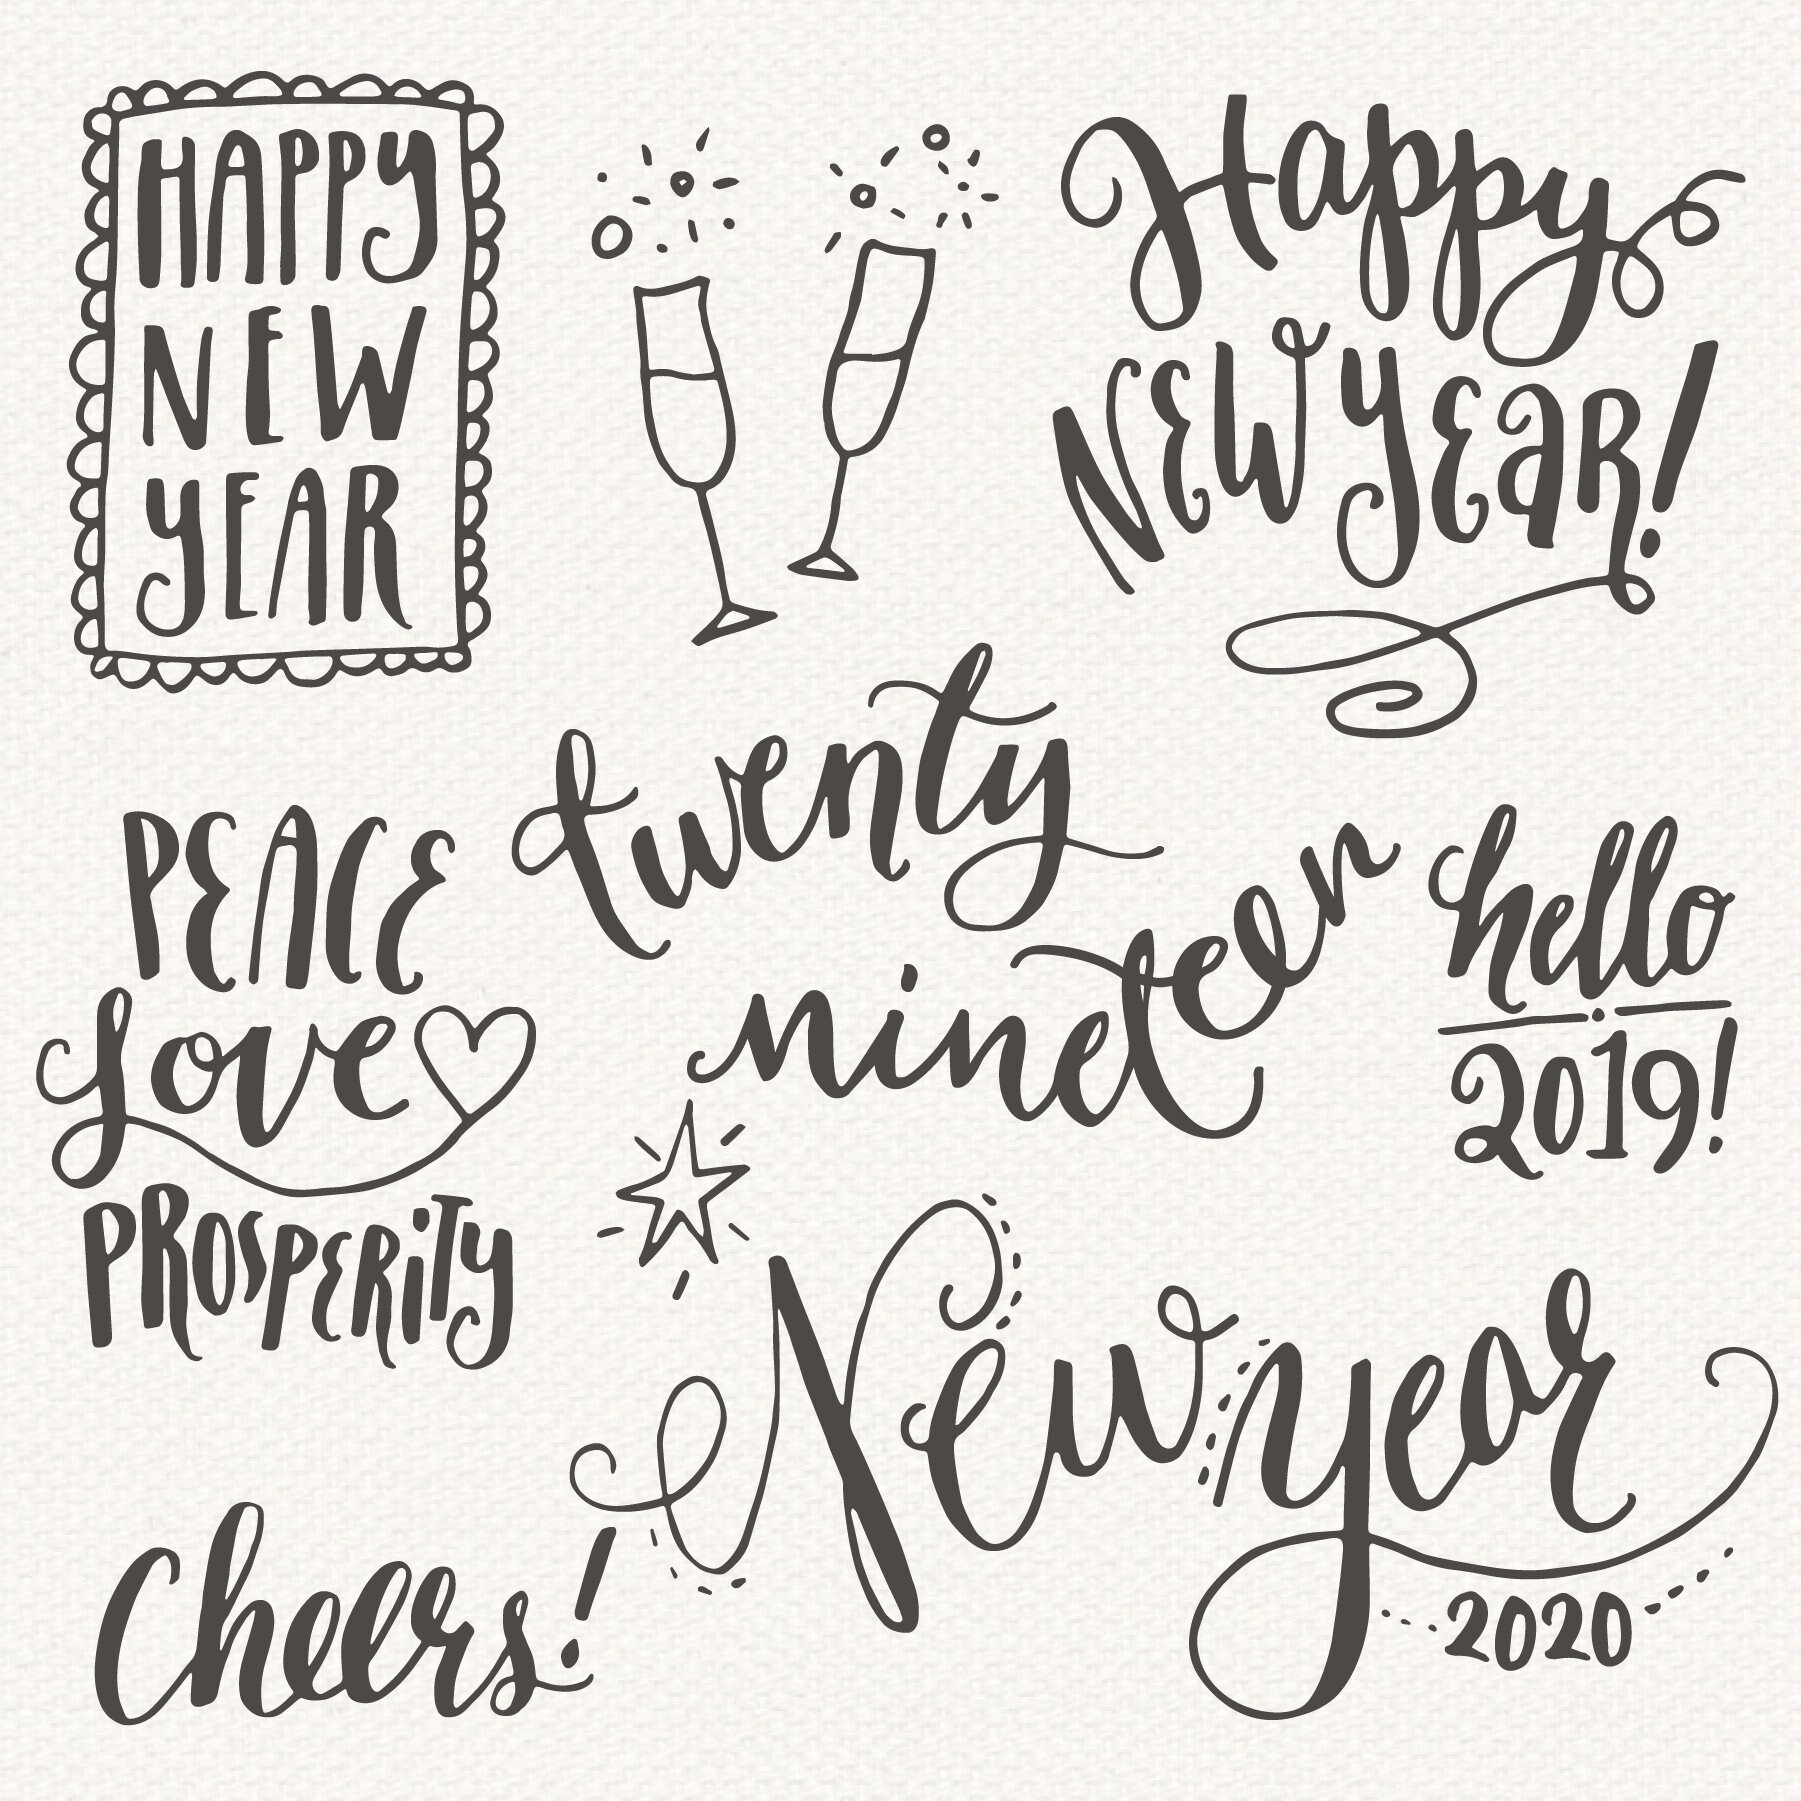 HAPPY
NEW
YEAR
Happy
NEW YEAR!
twenty
nineteen
PEACE
Love
PROSPERITY
hello
2019!
New year
2020
Cheers!